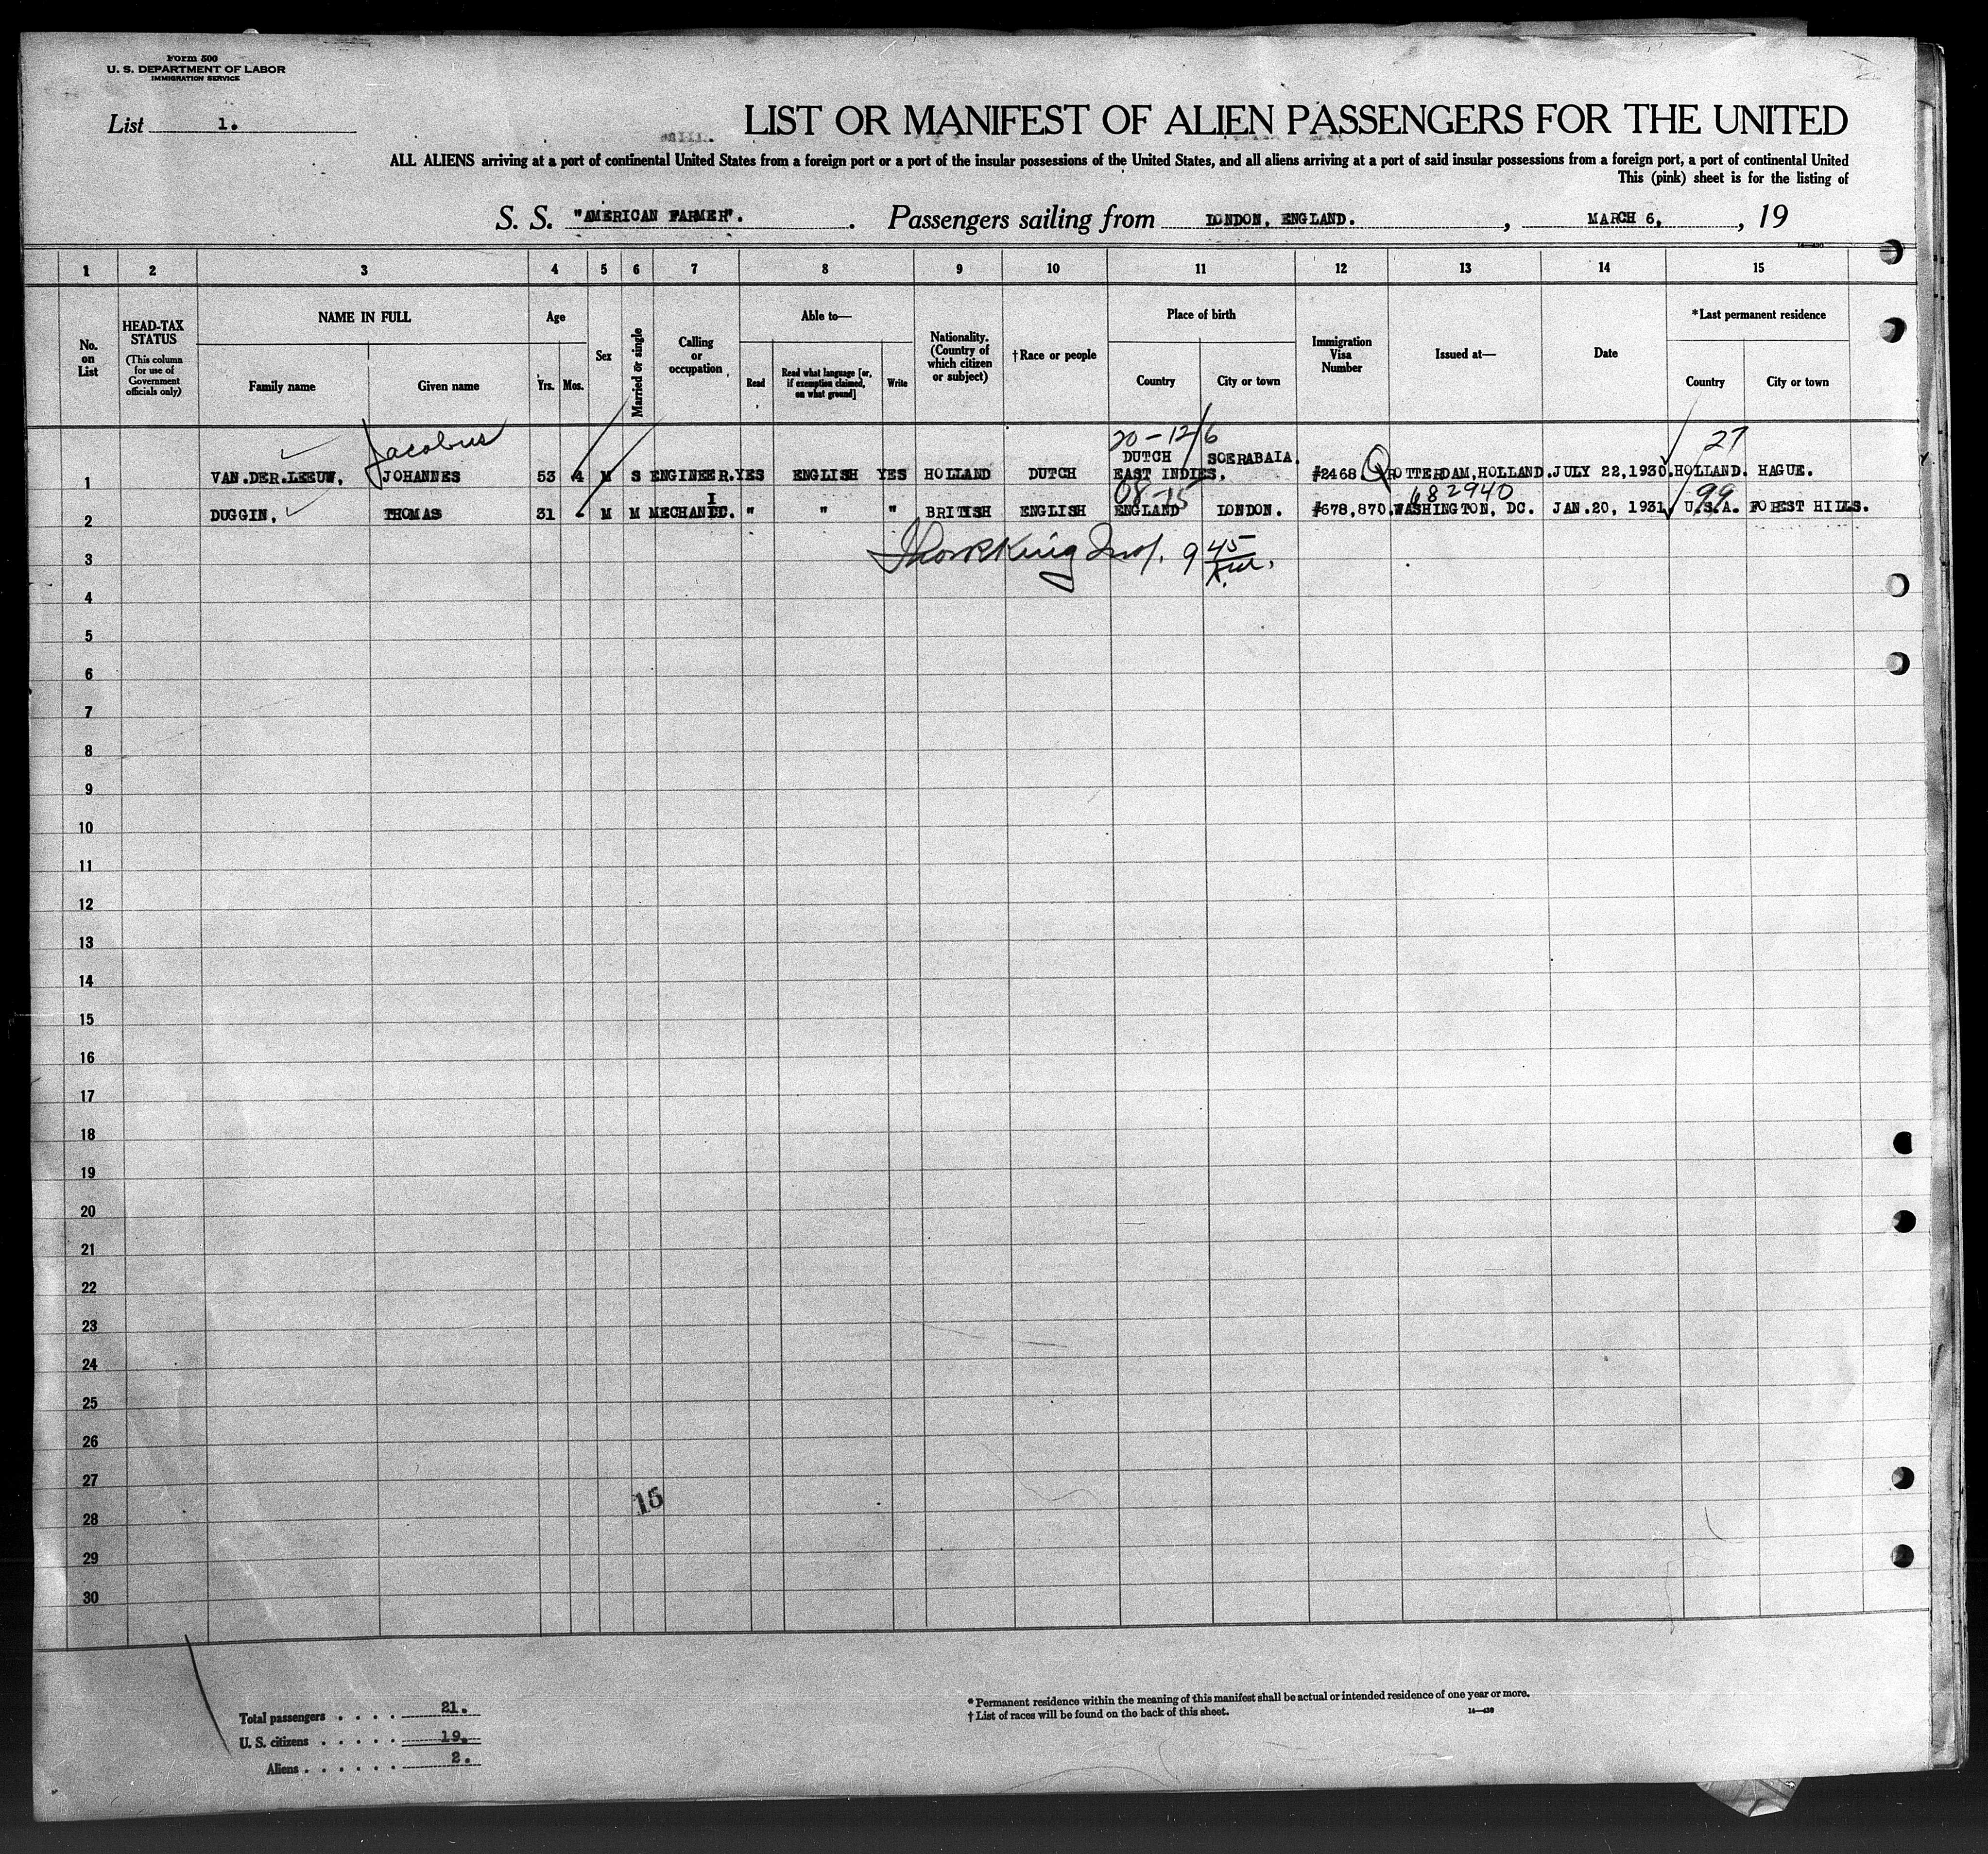 Form 500
U. S. DEPARTMENT OF LABOR
IMMIGRATION SERVICE
List 1.
LIST OR MANIFEST OF ALIEN PASSENGERS FOR THE UNITED
ALL ALIENS arriving at a port of continental United States from a foreign port or a port of the insular possessions of the United States, and all aliens arriving at a port of said insular possessions from a foreign port, a port of continental United
This (pink) sheet is for the listing of
S. S. "AMERICAN FARMER". Passengers sailing from LONDON, ENGLAND. , MARCH 6, , 19
1 2 3 4 5 6 7 8 9 10 11 12 13 14 15
No. on List
HEAD-TAX STATUS
(This column for use of Government officials only)
NAME IN FULL
Family name
Given name
Age
Yrs. Mos.
Sex
Married or single
Calling or occupation
Able to—
Read
Read what language [or, if exemption claimed, on what ground]
Write
Nationality. (Country of which citizen or subject)
† Race or people
Place of birth
Country
City or town
Immigration Visa Number
Issued at—
Date
* Last permanent residence
Country
City or town
Jacobus
20-12/6
27
1 VAN.DER.LEEUW, JOHANNES 53 4 M S ENGINEER. YES ENGLISH YES HOLLAND DUTCH DUTCH EAST INDIES. SOERABAIA. #2468 Q ROTTERDAM, HOLLAND. JULY 22, 1930. HOLLAND. HAGUE.
08-15
682940
99
2 DUGGIN, THOMAS 31 - M M MECHANIC. I " " " BRITISH ENGLISH ENGLAND LONDON. #678,870. WASHINGTON, DC. JAN. 20, 1931. U.S.A. FOREST HILLS.
King 9 45
3
4
5
6
7
8
9
10
11
12
13
14
15
16
17
18
19
20
21
22
23
24
25
26
27
15
28
29
30
Total passengers . . . . 21.
U. S. citizens . . . . . 19.
Aliens . . . . . . 2.
* Permanent residence within the meaning of this manifest shall be actual or intended residence of one year or more.
† List of races will be found on the back of this sheet.
14—430